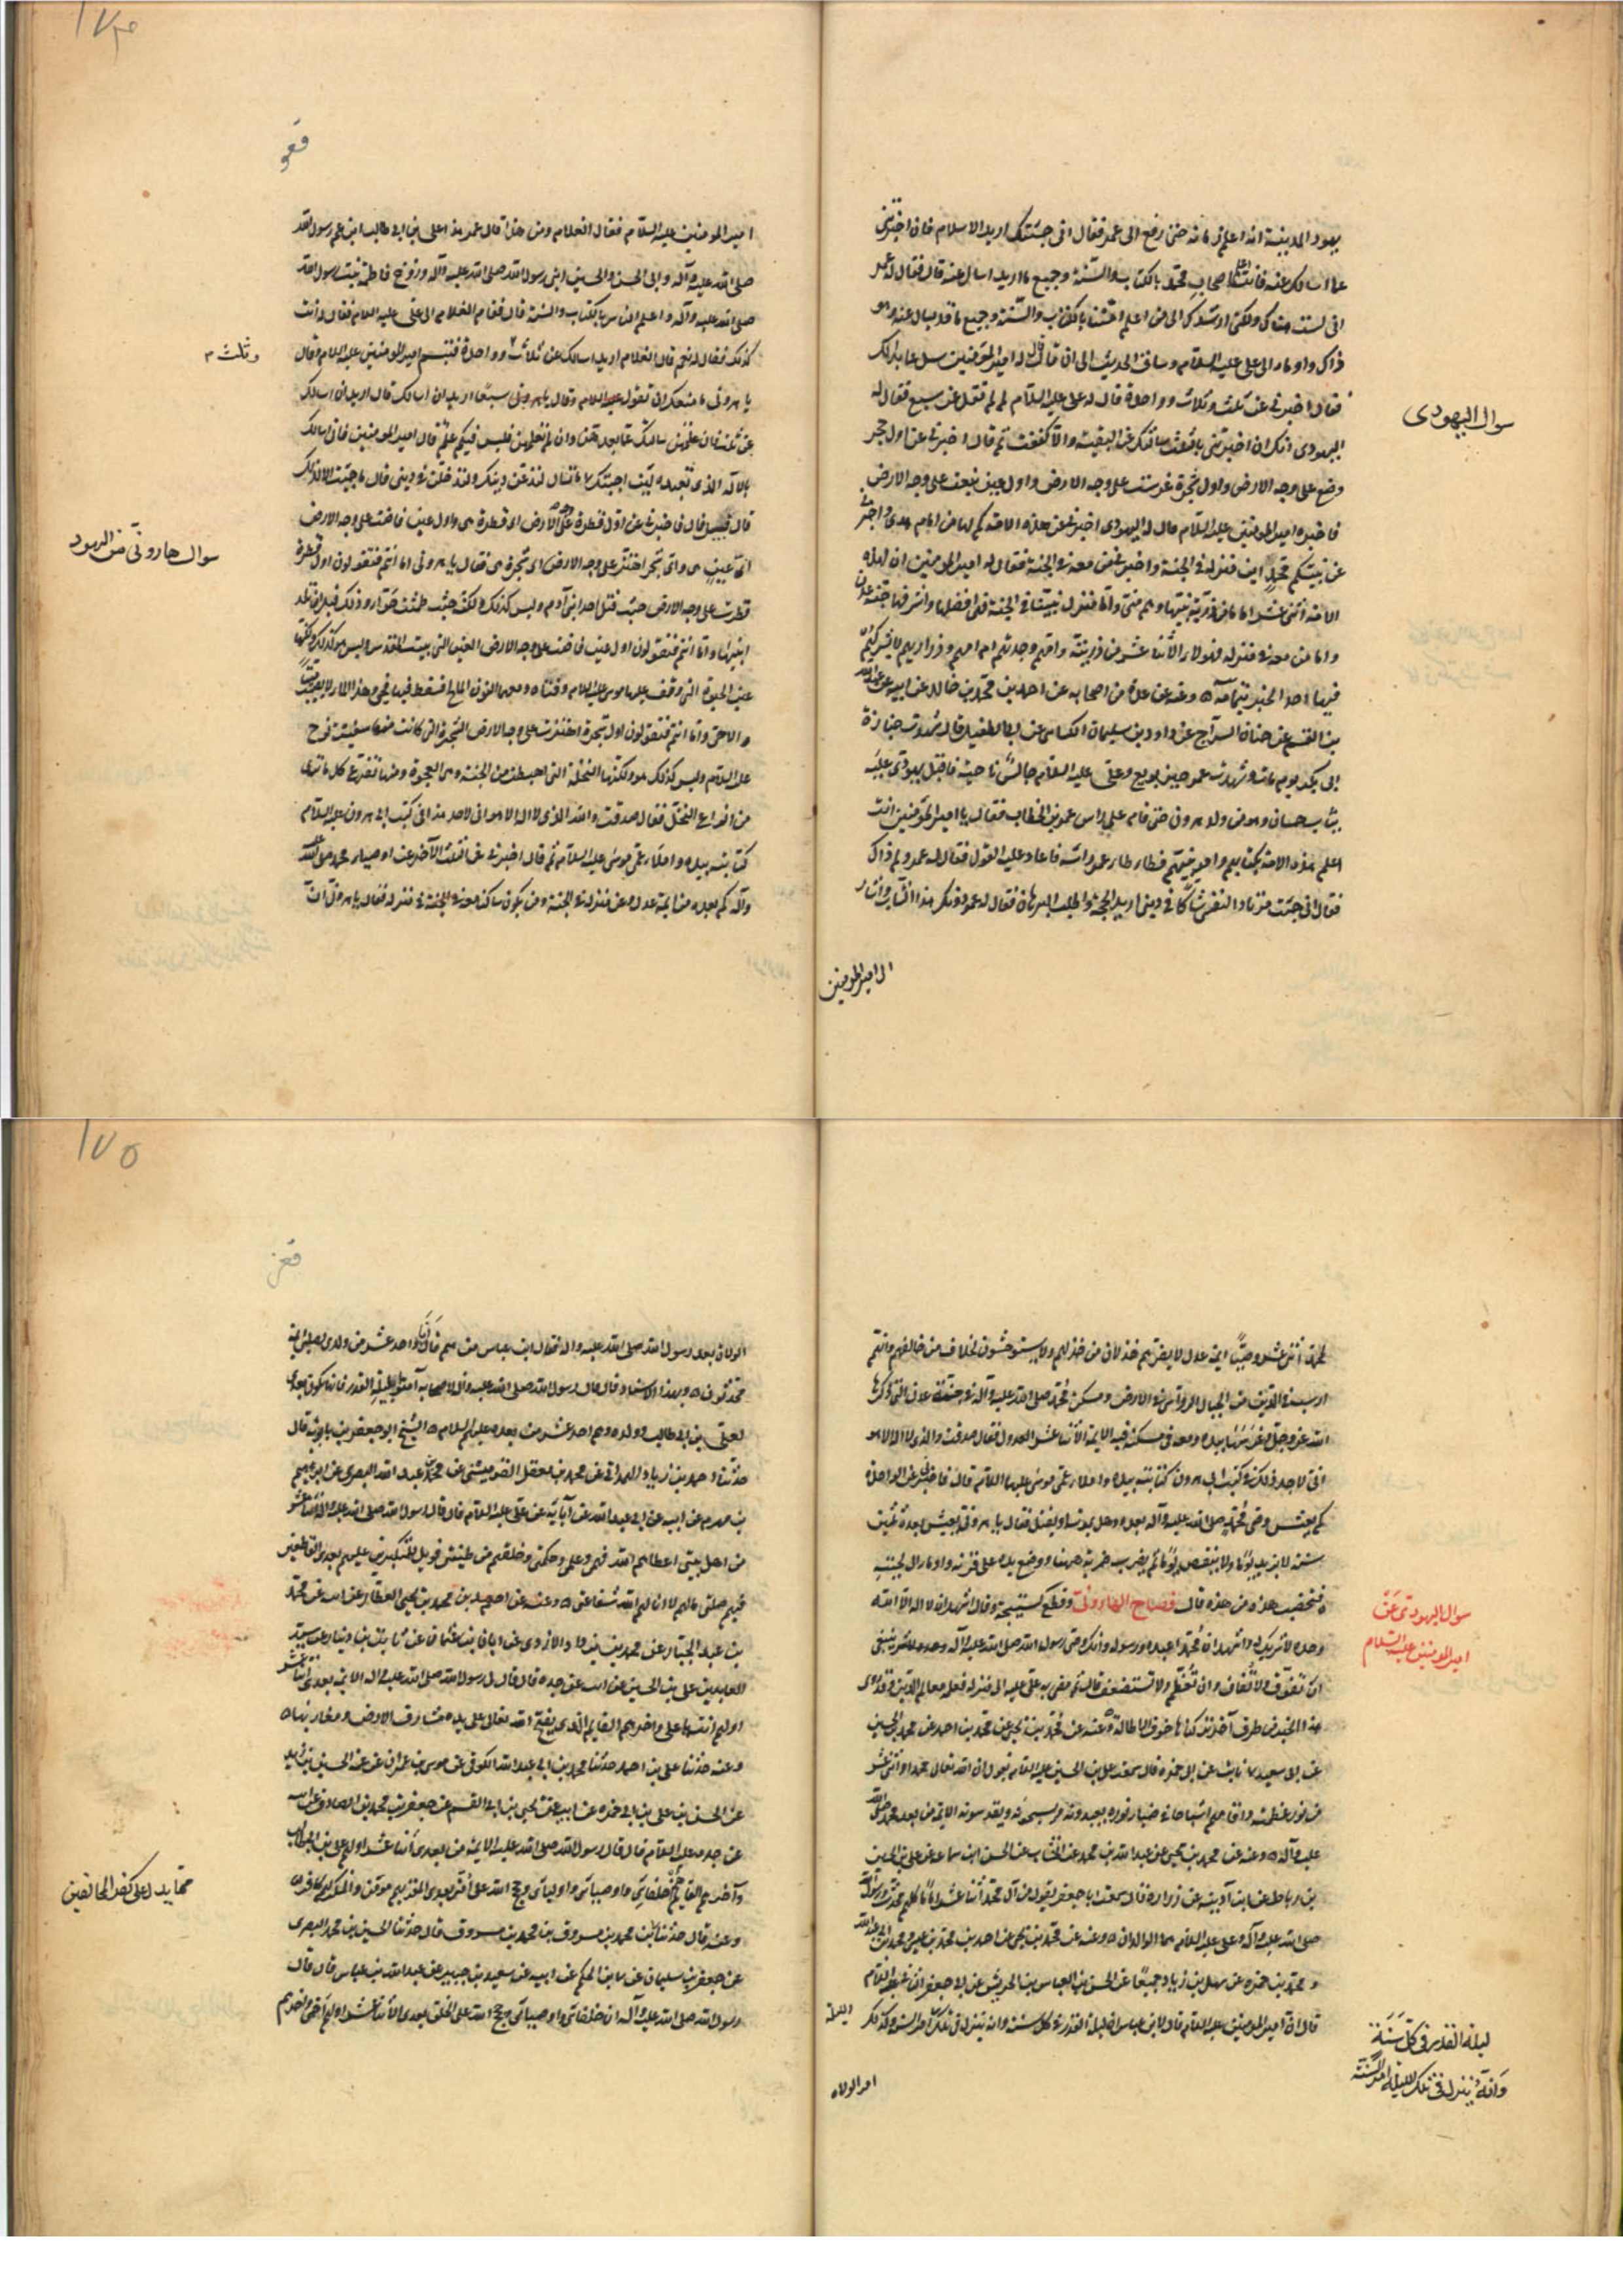 يهود المدينة انه اعلم زمانه حتى رفع الى عمر فقال انى جئتك اريد الاسلام فان اخبرتنى
عما اسالك عنه فانت اعلم اصحاب محمد بالكتاب والسنة وجميع ما اريد اسال عنه قال فقال له عمر
انى لست هناك ولكنى ارشدك الى من اعلم امتنا بالكتاب والسنة وجميع ما قد يسال عنه وهو
ذاك واوما الى على عليه السلام وساق الحديث الى ان قال قال له امير المؤمنين سل عما بدا لك
فقال اخبرنى عن ثلث وثلاث وواحدة قال له على عليه السلام لم لم تقل عن سبع فقال له
اليهودى انك ان اخبرتنى بالثلث سالتك عن البقية والا كففت ثم قال اخبرنى عن اول حجر
وضع على وجه الارض واول شجرة غرست على وجه الارض واول عين نبعت على وجه الارض
فاخبره امير المؤمنين عليه السلام قال له اليهودى اخبرنى عن هذه الامة كم لها من امام هدى واخبرنى
عن نبيكم محمد اين منزله فى الجنة واخبرنى من معه فى الجنة فقال له امير المؤمنين ان لهذه
الامة اثنى عشر اماما من ذرية نبيها وهم منى واما منزل نبينا فى الجنة ففى افضلها واشرفها جنة عدن
واما من معه فى منزله فهولاء الاثنا عشر من ذريته وامهم وجدتهم ام امهم وذراريهم لا يشركهم
فيها احد الخبر بتمامه وعنه عن عدة من اصحابه عن احمد بن محمد بن خالد عن ابيه عن عبدالله
بن القسم عن حنان السراج عن داود بن سليمان الكسائى عن ابى الطفيل قال شهدت جنازة
ابى بكر يوم مات وشهدت عمر حين بويع وعلى عليه السلام جالس ناحية فاقبل يهودى عليه
ثياب حسان وهو من ولد هرون حتى قام على راس عمر بن الخطاب فقال يا امير المؤمنين انت
اعلم هذه الامة بكتابهم وامر نبيهم فطاطا عمر راسه فاعاد عليه القول فقال له عمر ولم ذاك
فقال انى جئت مرتادا لنفسى شاكا فى دينى اريد الحجة واطلب البرهان فقال له عمر دونك هذا الشاب واشار
الى امير المؤمنين
سوال اليهودى
١٧٤
قعو
امير المومنين عليه السلام فقال الغلام ومن هذا قال عمر هذا على بن ابى طالب ابن عم رسول الله
صلى الله عليه وآله وابى الحسن والحسين ابنى رسول الله صلى الله عليه وآله وزوج فاطمة بنت رسول الله
صلى الله عليه وآله واعلم الناس بالكتاب والسنة قال فقام الغلام الى على عليه السلام فقال له انت
كذلك فقال له نعم قال الغلام اريد اسالك عن ثلاث وواحدة فتبسم امير المومنين عليه السلام وقال
يا هرونى ما منعك ان تقول سبعا قال اريد ان اسالك
عن ثلث فان علمتهن سالتك عما بعدهن وان لم تعلمهن فليس فيكم علم قال امير المومنين فانى اسالك
بالاله الذى تعبده لئن اجبتك لتدعن دينك ولتدخلن فى دينى قال ما جئت الا لذلك
قال فسل قال فاخبرنى عن اول قطرة على وجه الارض اى قطرة هى واول عين فاضت على وجه الارض
اى عين هى واى شجر اهتز على وجه الارض اى شجرة هى فقال يا هرونى اما انتم فتقولون اول قطرة
قطرت على وجه الارض حيث قتل احد ابنى آدم وليس كذلك ولكنه حيث طمثت حوا وذلك قبل ان تلد
ابنيها واما انتم فتقولون اول عين فاضت على وجه الارض العين التى ببيت المقدس وليس هو كذلك ولكنها
عين الحيوة التى وقف عليها موسى عليه السلام وفتاه ومعهما النون المالح فسقط فيها فحيى وهذا الماء لا يصيب ميتا
الا حيى واما انتم فتقولون اول شجرة اهتزت على وجه الارض الشجرة التى كانت منها سفينة نوح
عليه السلام وليس كذلك هو ولكنها النخلة التى اهبطت من الجنة وهى العجوة ومنها تفرع كل ما ترى
من انواع النخل فقال صدقت والله الذى لا اله الا هو انى لاجد هذا فى كتب ابى هرون عليه السلام
كتابته بيده واملاء عمى موسى عليه السلام ثم قال اخبرنى عن الثلث الآخر عن اوصياء محمد صلى الله عليه
وآله كم بعده من ائمة عدل وعن منزله فى الجنة ومن يكون ساكنا معه فى الجنة فى منزله فقال يا هرونى ان
وثلث م
سوال هارونى من اليهود
لمحمد اثنى عشر وصيا ائمة عدل لا يضرهم خذلان من خذلهم ولا يستوحشون لخلاف من خالفهم وانهم
ارسب فى الدين من الجبال الرواسى فى الارض ومسكن محمد صلى الله عليه وآله فى جنة عدن التى ذكرها
الله عز وجل وغرسها بيده ومعه فى مسكنه فيه الائمة الاثنا عشر العدول فقال صدقت والذى لا اله الا هو
انى لاجد ذلك فى كتب ابى هرون كتابته بيده واملاء عمى موسى عليهما السلام قال فاخبرنى عن الواحدة
كم يعيش وصى محمد صلى الله عليه وآله بعده وهل يموت او يقتل فقال يا هرونى يعيش بعده ثلثين
سنة لا يزيد يوما ولا ينقص يوما ثم يضرب ضربة ههنا ووضع يده على قرنه واومأ الى لحيته
فتخضب هذه من هذه قال فصاح الهارونى وقطع كستيجه وقال اشهد ان لا اله الا الله
وحده لا شريك له واشهد ان محمدا عبده ورسوله وانك وصى رسول الله صلى الله عليه وآله ينبغى
ان تفوق ولا تفاق وان تعظم ولا تستضعف قال ثم مضى به على عليه السلام الى منزله فعلمه معالم الدين وقد روى
هذا الخبر من طرق آخر تركناها خوف الاطالة وعنه عن محمد بن يحيى عن محمد بن احمد عن محمد بن الحسين
عن ابى سعيد عن ابى حمزة قال سمعت على بن الحسين عليه السلام يقول ان الله تعالى خلق محمدا واثنى عشر
من نور عظمته واقامهم اشباحا فى ضياء نوره يعبدونه ويسبحونه ويقدسونه الائمة من بعد محمد صلى الله
عليه وآله وعنه عن محمد بن يحيى عن عبد الله بن محمد عن الخشاب عن الحسن ابن سماعة عن على بن الحسين
بن رباط عن ابن اذينة عن زرارة قال سمعت ابا جعفر يقول من آل محمد اثنا عشر اماما كلهم محدث ورسول الله
صلى الله عليه وآله وعلى عليه السلام هما الوالدان وعنه عن محمد بن يحيى عن احمد بن محمد بن عيسى ومحمد بن ابى عبدالله
ومحمد بن حمزه عن سهل بن زياد جميعا عن الحسن بن العباس بن الحريش عن ابى جعفر الثانى عليه السلام
قال ان امير المومنين عليه السلام قال لابن عباس ان ليلة القدر فى كل سنة وانه تنزل فى تلك الليلة امر السنة ولذلك
امر الولاه
سوال اليهودى عن
امير المومنين عليه السلام
ليلة القدر فى كل سنة
وانه ينزل فى تلك الليلة امر السنة
١٧٥
قعز
الولاة بعد رسول الله صلى الله عليه واله فقال ابن عباس من هم قال انا واحد عشر من ولدى صلبى ائمة
محدثون وبهذا الاسناد قال قال رسول الله صلى الله عليه وآله لاصحابه آمنوا بليلة القدر فانها تكون بعدى
لعلى بن ابى طالب وولده وهم احد عشر من بعده عليهم السلام الشيخ ابو جعفر بن بابويه قال
حدثنا احمد بن زياد الهمدانى عن محمد بن معقل القرميسنى عن محمد بن عبد الله البصرى عن ابراهيم
بن مهزم عن ابيه عن ابى عبد الله عن آبائه عن على عليه السلام قال قال رسول الله صلى الله عليه وآله اثنا عشر
من اهل بيتى اعطاهم الله فهمى وعلمى وحكمتى وخلقهم من طينتى فويل للمتكبرين عليهم بعدى القاطعين
فيهم صلتى ما لهم لا انالهم الله شفاعتى وعنه عن احمد بن محمد بن يحيى العطار عن ابيه عن محمد
بن عبد الجبار عن محمد بن زياد الازدى عن ابان بن عثمان عن ثابت بن دينار عن سيد
العابدين على بن الحسين عن ابيه عن جده قال قال رسول الله صلى الله عليه واله الائمة بعدى اثنا عشر
اولهم انت يا على واخرهم القايم الذى يفتح الله تعالى على يديه مشارق الارض ومغاربها
وعنه حدثنا على بن احمد حدثنا محمد بن ابى عبد الله الكوفى عن موسى بن عمران عن عمه الحسين بن يزيد
عن الحسن بن على بن ابى حمزه عن ابيه عن يحيى بن ابى القسم عن جعفر بن محمد الصادق عن ابيه
عن جده عليه السلام قال قال رسول الله صلى الله عليه الائمة من بعدى اثنا عشر اولهم على بن ابى طالب
وآخرهم القايم هم خلفائى واوصيائى واوليائى وحجج الله على امتى بعدى المقر بهم مومن والمنكر لهم كافر
وعنه قال حدثنا محمد بن مسرور قال حدثنا الحسين بن محمد البصرى
عن جعفر بن سليمان عن ابيه عن سعيد بن جبير عن عبد الله بن عباس قال قال
رسول الله صلى الله عليه وآله ان خلفائى واوصيائى وحجج الله على الخلق بعدى الاثنا عشر اولهم اخى واخرهم
مما يدل على كفر المخالفين